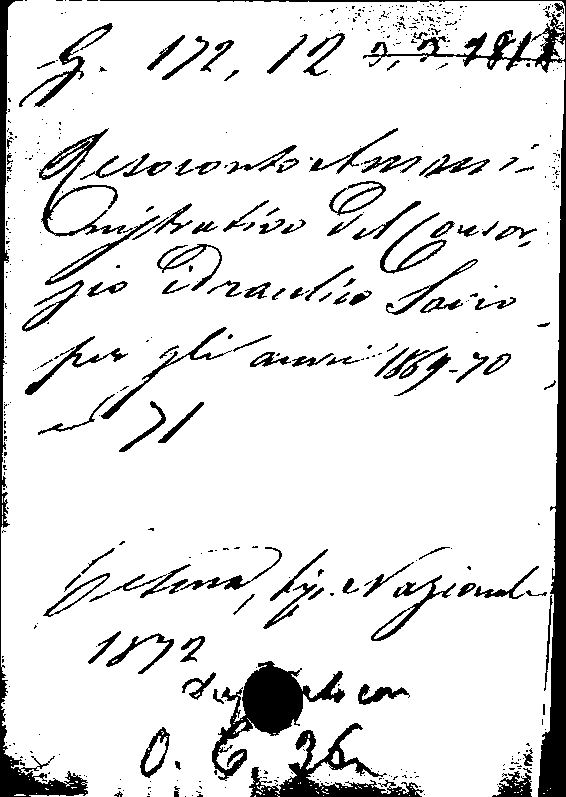 G. 172, 12 3, 3, 181.
Resoconto Ammini-
nistrativo del Consor,
zio idraulico Savio
per gli anni 1869-70
e 71
Cesena, tip. Nazionale
1872
con
O. C. 36